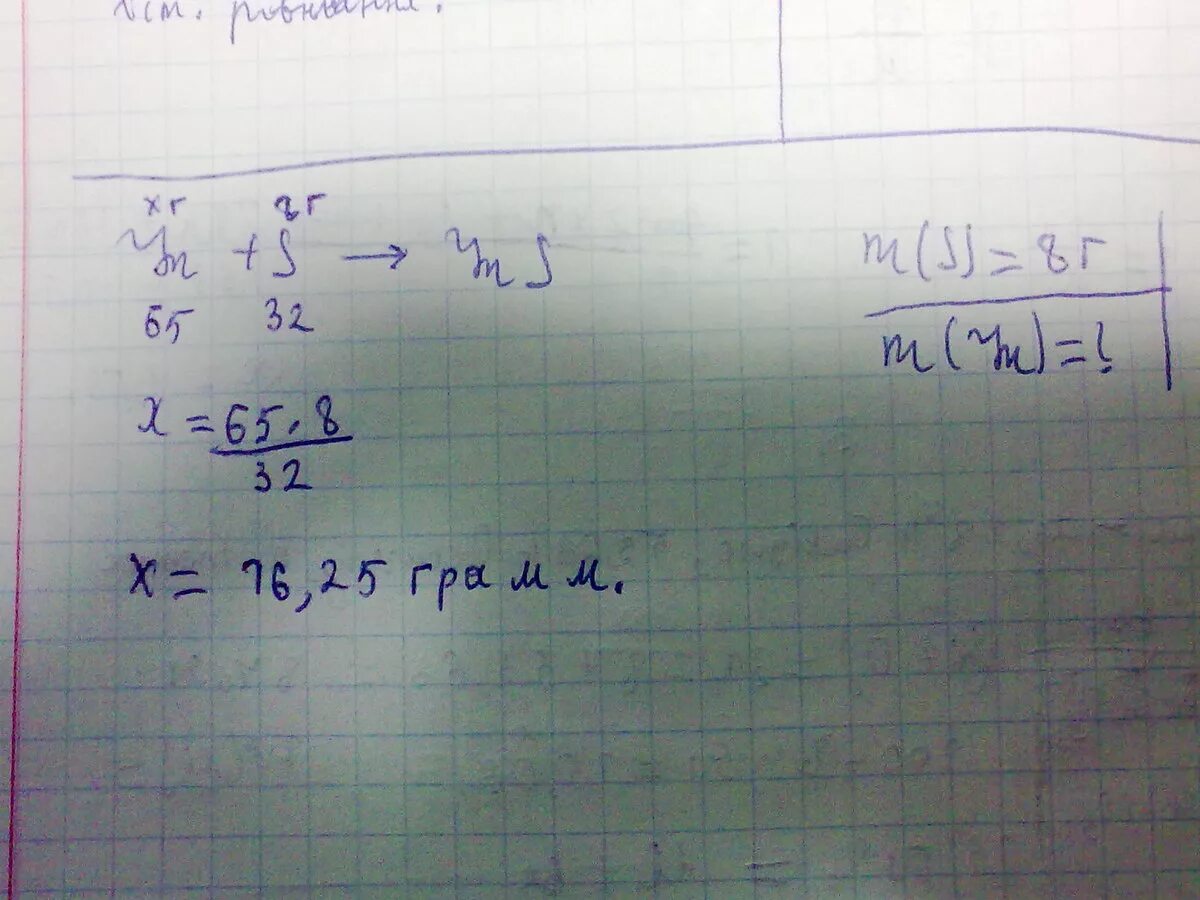 Хім. рівняння.
xг 8г
Zn + S → Zn S
65 32
m(S) = 8г
m(Zn) = ?
x = 65 · 8
32
x = 16,25 грамм.